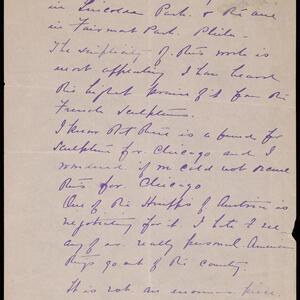 in Lincoln Park. & the one
in Fairmount Park. Phila—
The simplicity of this work is
most appealing I have heard
the highest praise of it from the
French sculptors.
I know that there is a fund for
sculpture for Chicago and I
wondered if we could not secure
this for Chicago
One of the of Austria is
negotiating for it. I hate to see
any of our really personal American
things go out of the country.
It is not an enormous price.